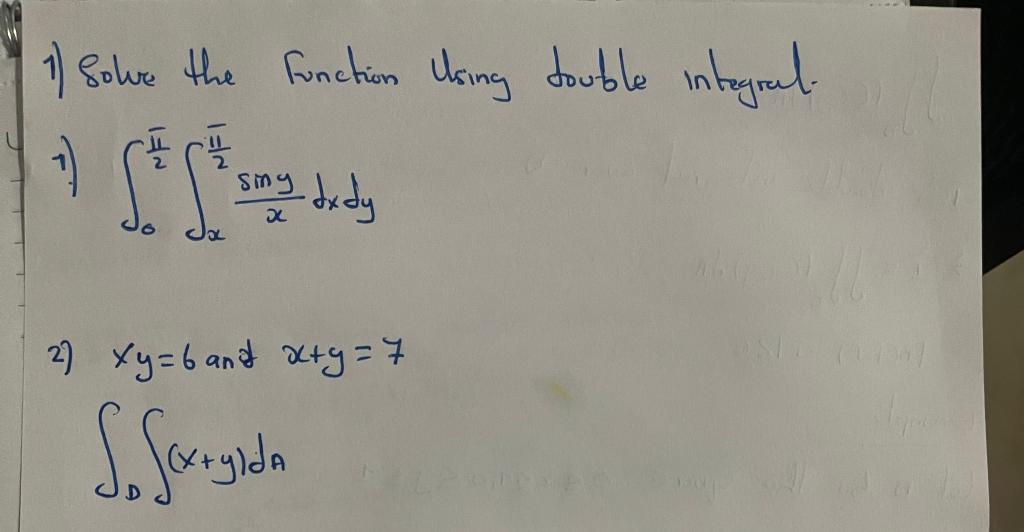 1) Solve the function Using double integral.
1) ∫₀^{π/2} ∫ₓ^{π/2} sin y / x dx dy
2) xy = 6 and x+y = 7
∫_D ∫ (x+y) dA